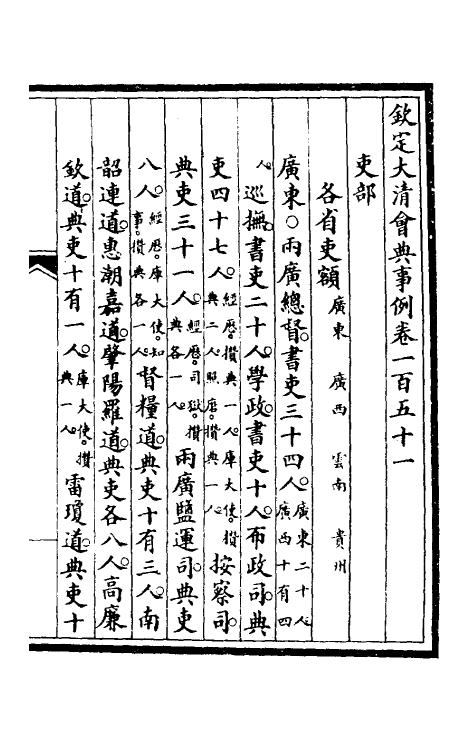 欽定大清會典事例卷一百五十一
吏部
各省吏額廣東 廣西 雲南 貴州
廣東〇兩廣總督。書吏三十四人。廣東二十人。廣西十有四人。
巡撫。書吏二十人。學政。書吏十人。布政司。典
吏四十七人。經歷。攢典一人。庫大使。攢典二人。照磨。攢典一人。按察司。
典吏三十一人。經歷。司獄。攢典各一人。兩廣鹽運司。典吏
八人。經歷。庫大使。知事。攢典各一人。督糧道。典吏十有三人。南
韶連道。惠潮嘉道。肇陽羅道。典吏各八人。高廉
欽道。典吏十有一人。庫大使。攢典一人。雷瓊道。典吏十